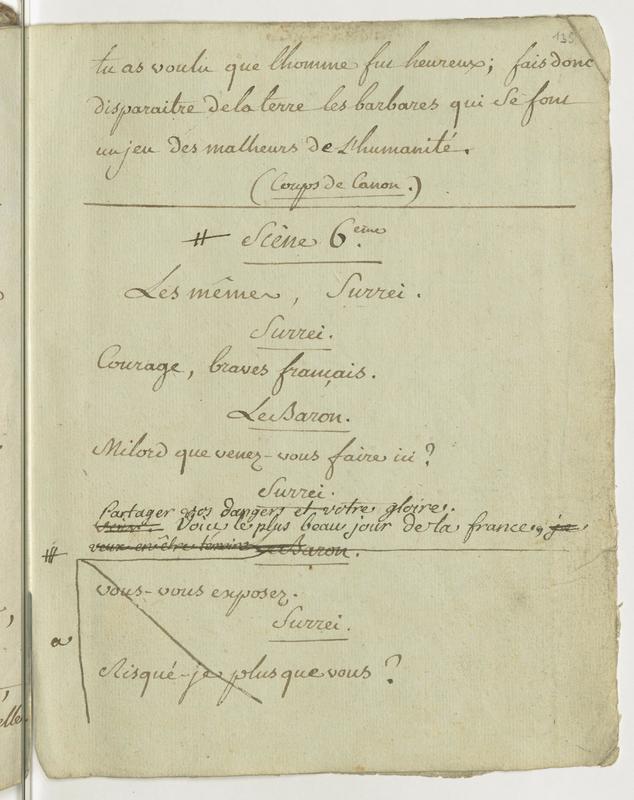 135
tu as voulu que lhomme fut heureux; fais donc
disparaitre de la terre les barbares qui se font
un jeu des malheurs de L'humanité.
(Coups de Canon.)
# Scène 6.eme
Les mêmes, Surrei.
Surrei.
Courage, braves français.
Le Baron.
Milord que venez-vous faire ici?
Surrei.
Partager vos dangers et votre gloire.
Voici le plus beau jour de la france, je
veux en être témoin
# Le Baron.
vous-vous exposez.
Surrei.
a
Risqué-je plus que vous?